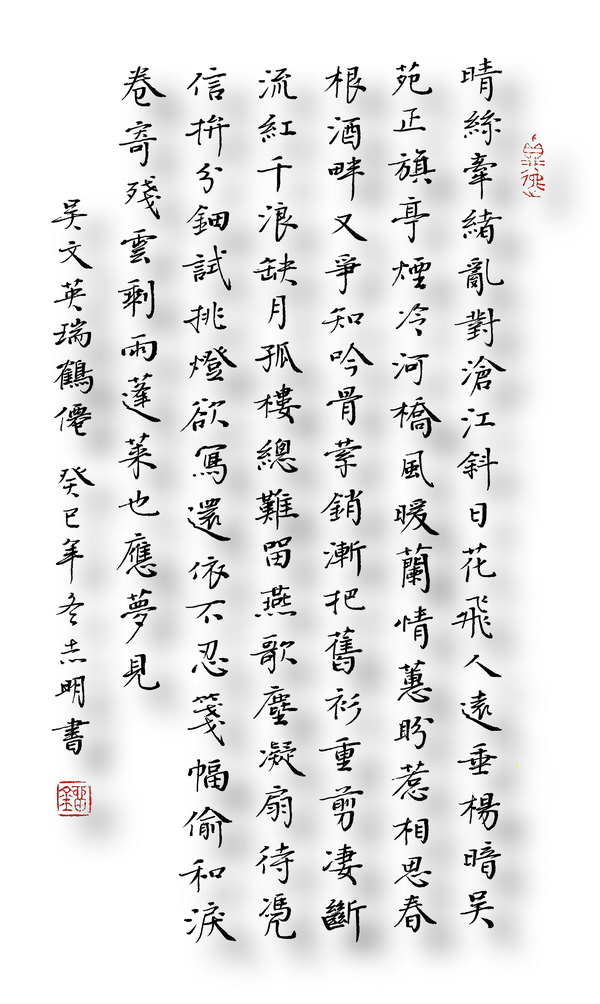 晴絲牽緒亂對滄江斜日花飛人遠垂楊暗吴
苑正旗亭煙冷河橋風暖蘭情蕙盼惹相思春
根酒畔又爭知吟骨縈銷漸把舊衫重剪凄斷
流紅千浪缺月孤樓總難留燕歌塵凝扇待凴
信拚分鈿試挑燈欲寫還依不忍箋幅偷和淚
卷寄殘雲剩雨蓬萊也應夢見
吴文英瑞鶴僊 癸巳年冬志明書